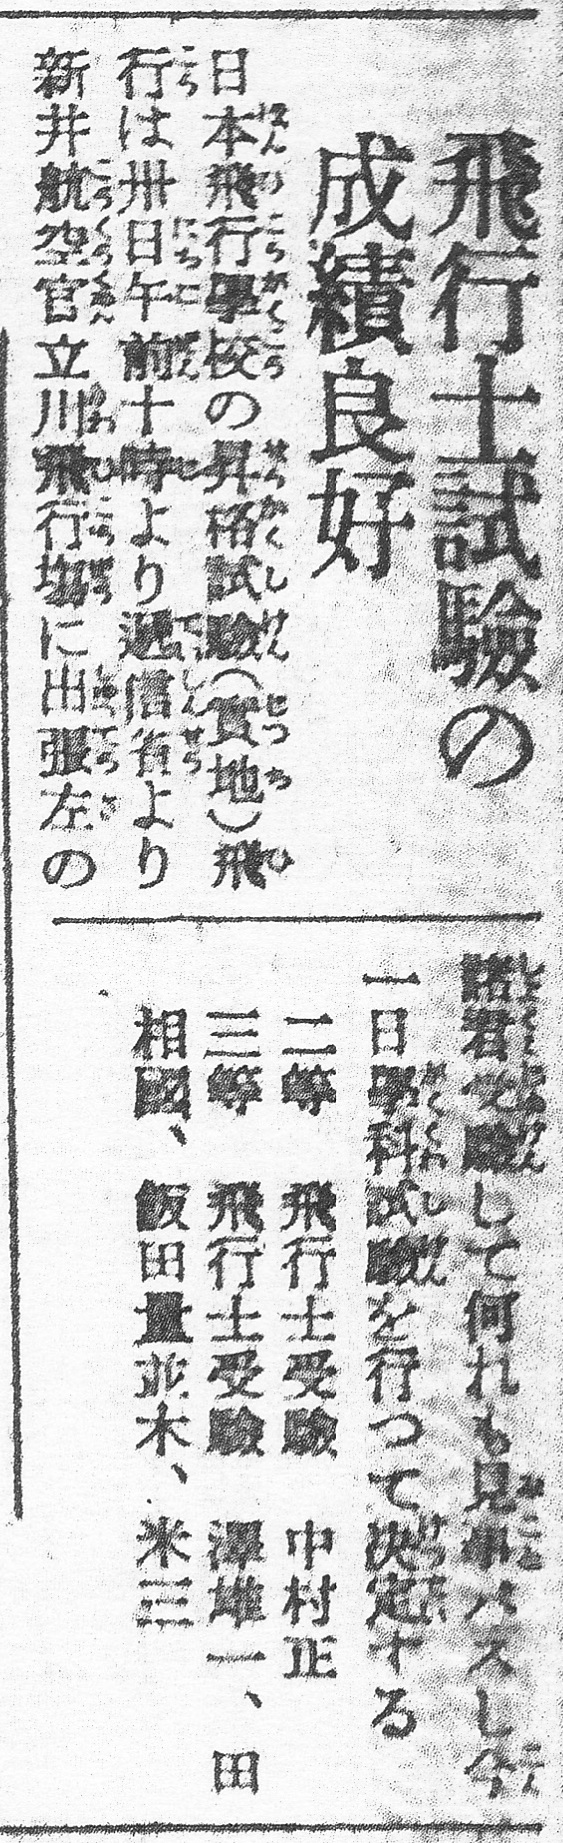 飛行士試驗の
成績良好
日本飛行學校の昇格試驗(實地)飛
行は卅日午前十時より遞信省より
新井航空官立川飛行場に出張左の
諸君受驗して何れも見事パスし今
一日學科試驗を行つて決定する
二等 飛行士受驗 中村正
三等 飛行士受驗 澤雄一、田
相國、飯田量並木、米三